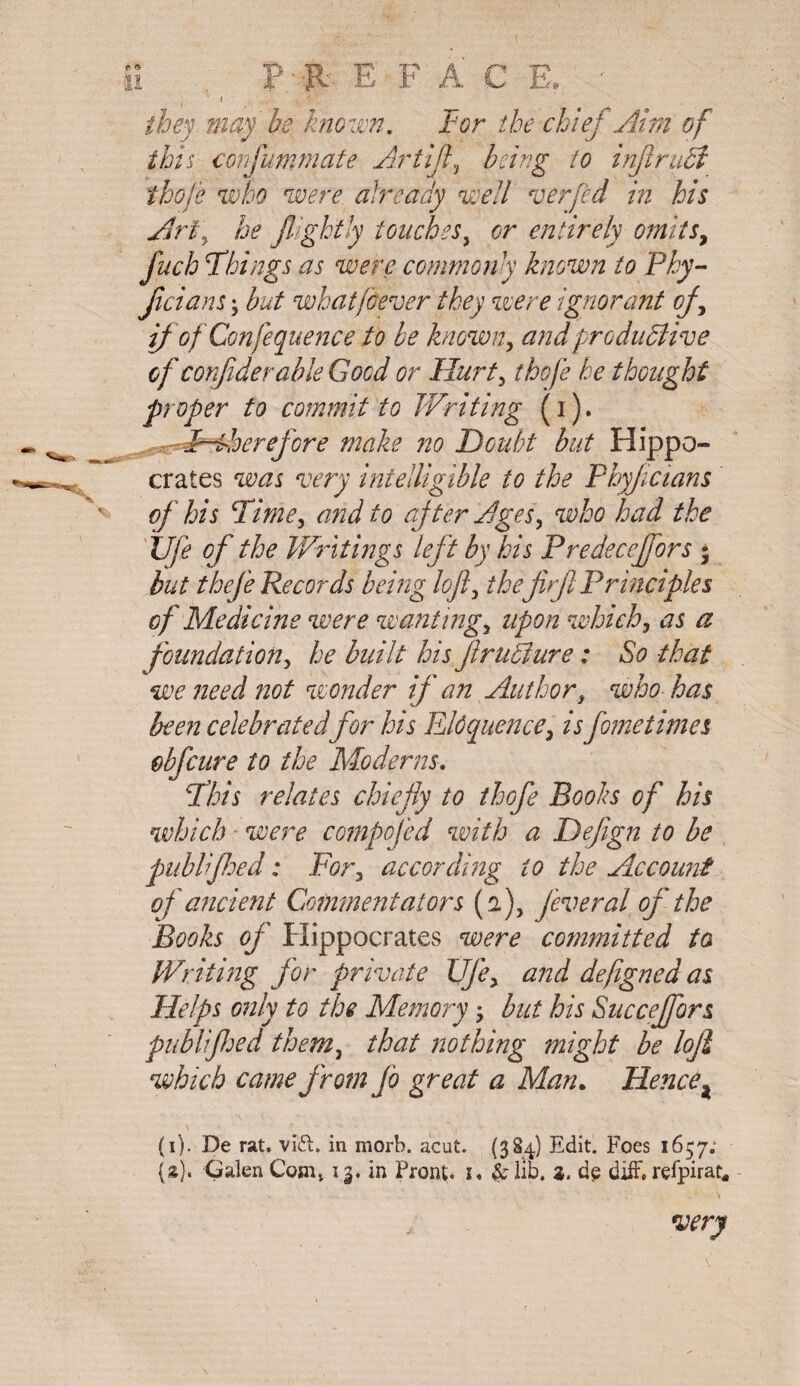 ii PREFACE.
they may be known. For the chief Aim of
this conſummate Artiſt, being to inſtruct
thoſe who were already well verſed in his
Art, he ſlightly touches, or entirely omits,
ſuch Things as were commonly known to Phy-
ſicians; but whatſoever they were ignorant of,
if of Conſequence to be known, and productive
of conſiderable Good or Hurt, thoſe he thought
proper to commit to Writing (1).
I therefore make no Doubt but Hippo-
crates was very intelligible to the Phyſicians
of his Time, and to after Ages, who had the
Uſe of the Writings left by his Predeceſſors;
but theſe Records being loſt, the firſt Principles
of Medicine were wanting, upon which, as a
foundation, he built his ſtructure: So that
we need not wonder if an Author, who has
been celebrated for his Eloquence, is ſometimes
obſcure to the Moderns.
This relates chiefly to thoſe Books of his
which were compoſed with a Deſign to be
publiſhed: For, according to the Account
of ancient Commentators (2), ſeveral of the
Books of Hippocrates were committed to
Writing for private Uſe, and deſigned as
Helps only to the Memory; but his Succeſſors
publiſhed them, that nothing might be loſt
which came from ſo great a Man. Hence,
(1). De rat. vict. in morb. acut. (384) Edit. Foes 1657.
(2). Galen Com. 13. in Pront. 1. & lib. 2. de diff. reſpirat.
very